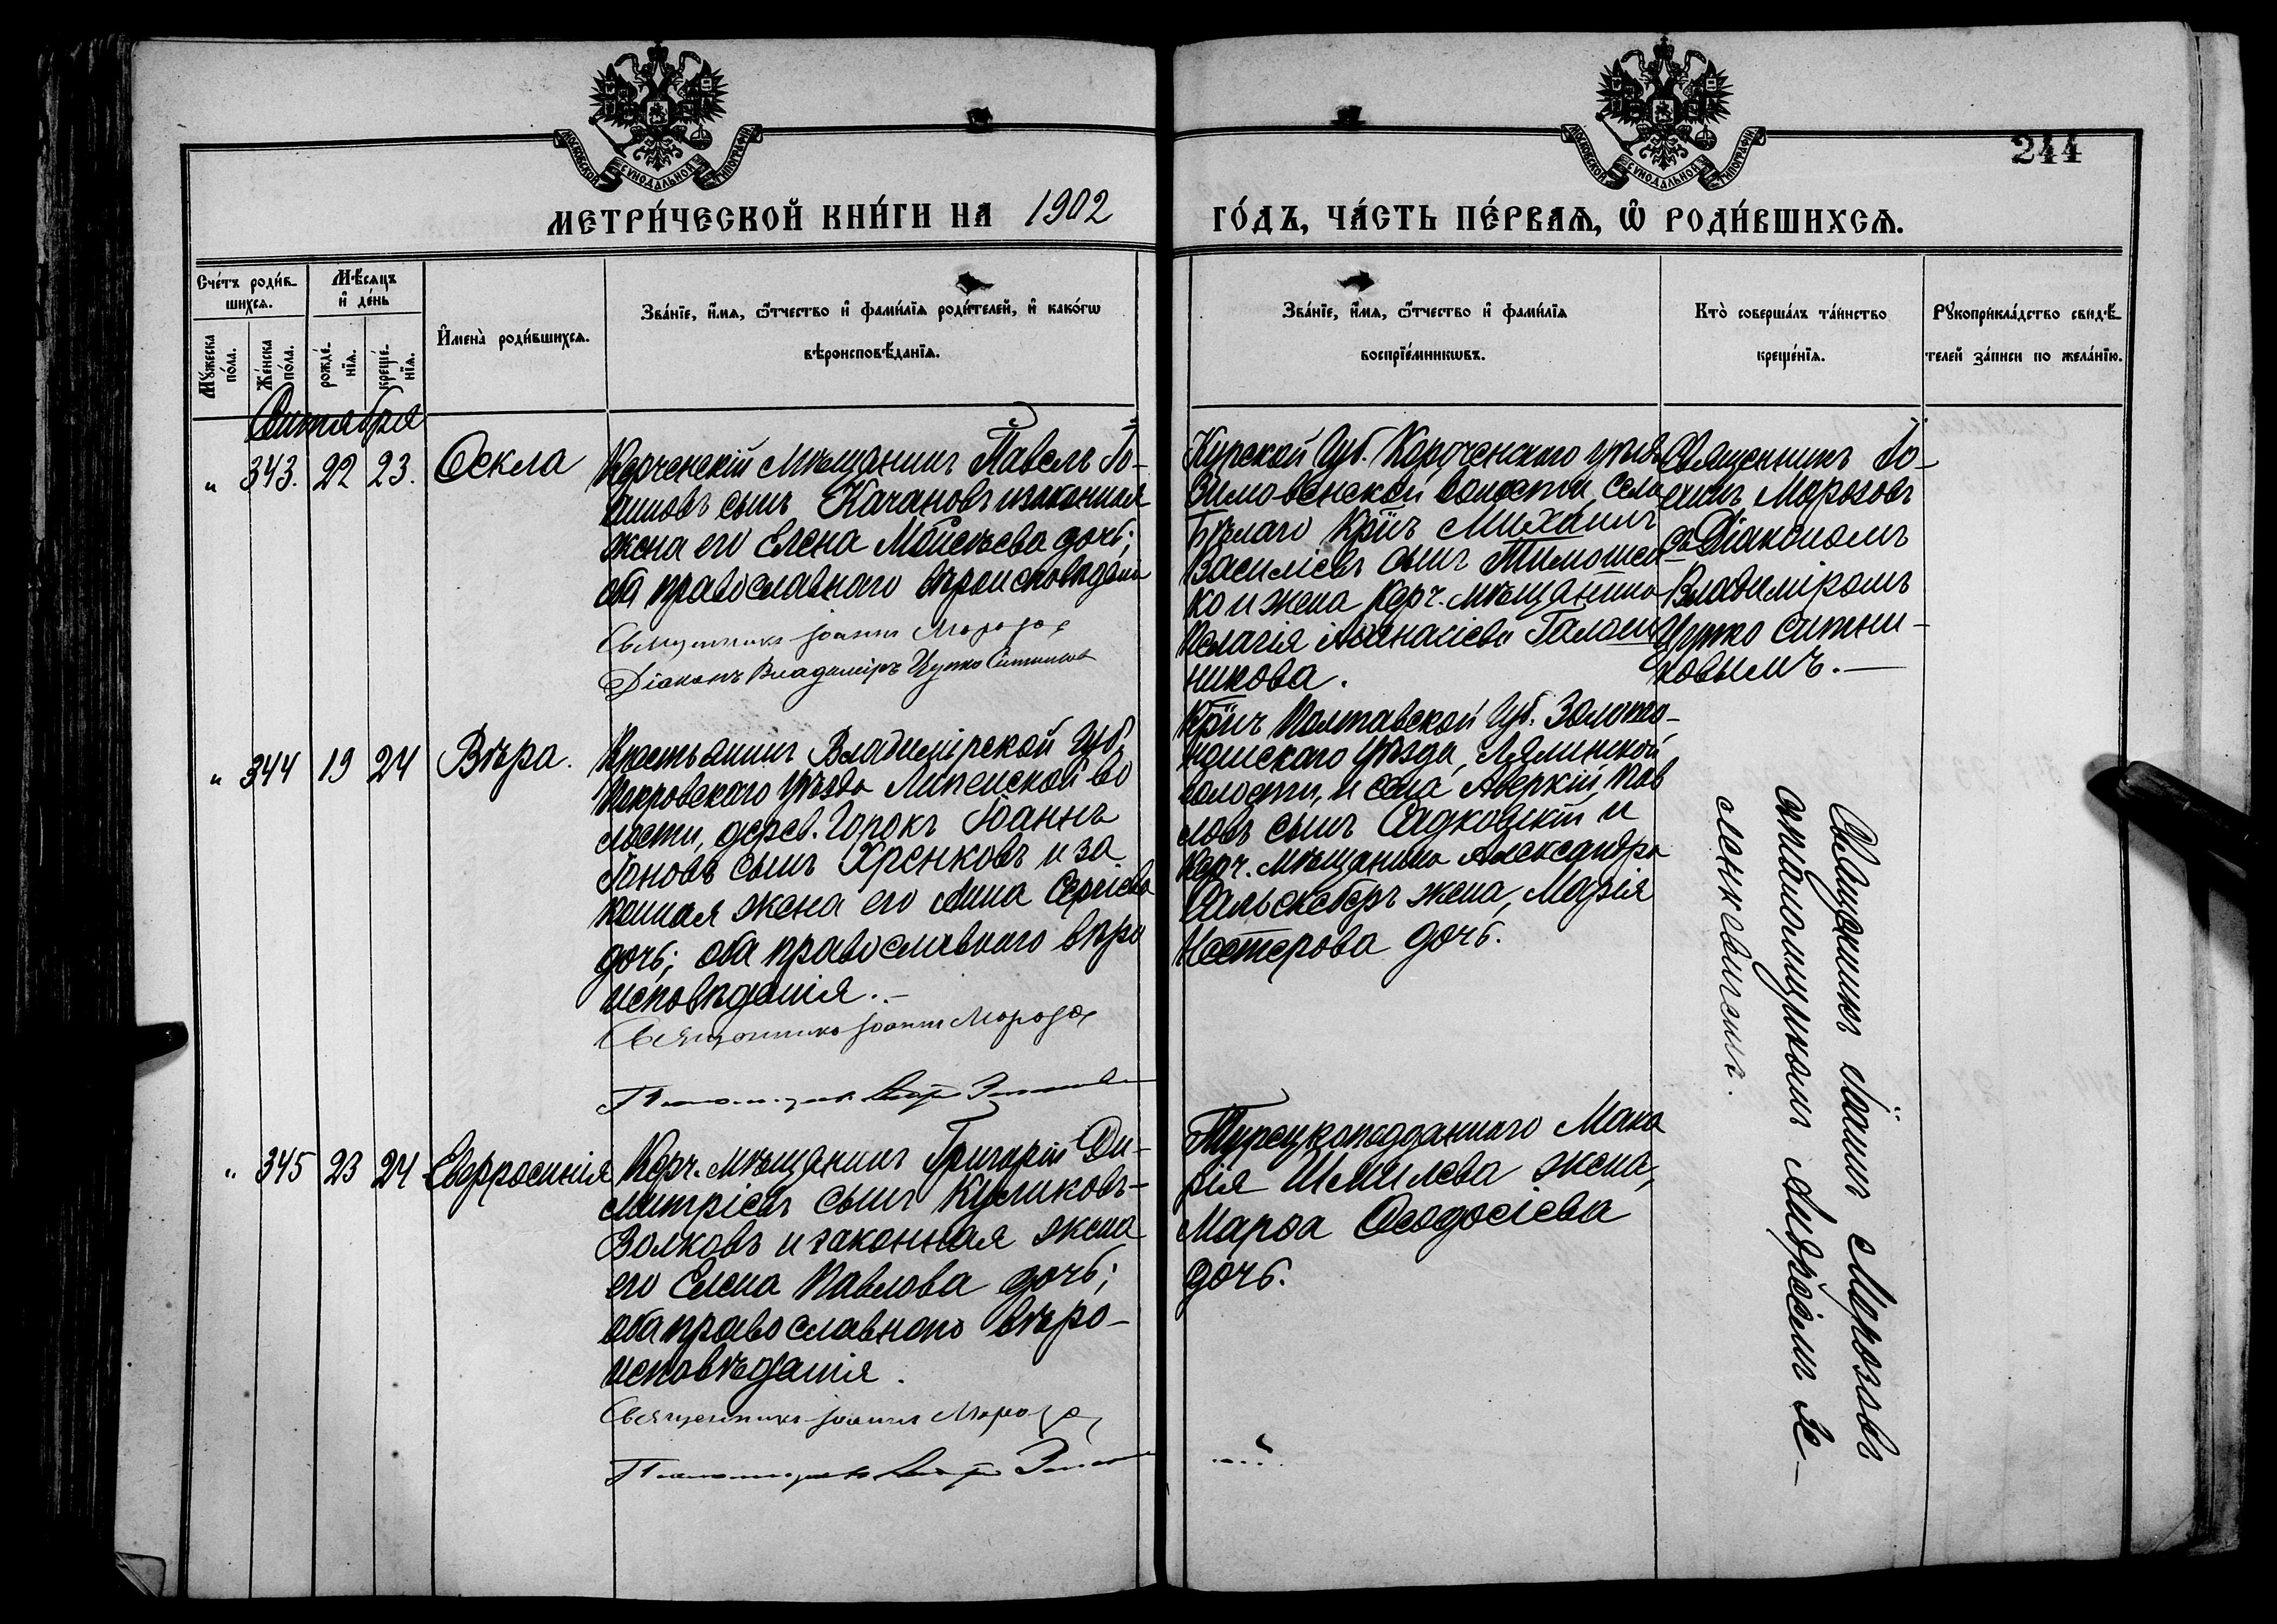 МОСКОВСКОЙ СѴНОДАЛЬНОЙ ТИПОГРАФІИ
МОСКОВСКОЙ СѴНОДАЛЬНОЙ ТИПОГРАФІИ
244
МЕТРИ́ЧЕСКОЙ КНИ́ГИ НА 1902
ГО́ДЪ, ЧА́СТЬ ПЕ́РВАѦ, Ѡ҆ РОДИ́ВШИХСѦ.
Сче́тъ роди́в-
шихсѧ.
Мѣ́сѧцъ
и҆ де́нь
Мꙋ́жеска
по́ла.
Же́нска
по́ла.
рожде́-
нїѧ.
креще́-
нїѧ.
И҆мена̀ роди́вшихсѧ.
Зва́нїе, и҆́мѧ, ѻ҆́тчество и҆ фами́лїѧ роди́телей, и҆ како́гѡ
вѣроисповѣ́данїѧ.
Зва́нїе, и҆́мѧ, ѻ҆́тчество и҆ фами́лїѧ
воспрїе́мникѡвъ.
Кто̀ соверша́лъ та́инство
креще́нїѧ.
Рꙋкоприкла́дство свидѣ́-
телей за́писи по жела́нїю.
" 343. 22 23. Ѳекла
Керченскій мѣщанинъ Павелъ Іо-
сынъ Качановъ и законная
жена его Елена Моисѣева дочь;
оба православнаго вѣроисповѣданія
Священникъ Іоаннъ Морозов
Діаконъ Владиміръ Цупко Ситников
Курской Губ. Корочанского уѣзда
волости, села
Бѣлаго Кр͠нъ Михаилъ
Василіевъ сынъ Тимошен-
ко и жена Керч. мѣщанина
Пелагія Аѳанасіева
никова.
Священникъ Іо-
аннъ Морозовъ
съ Діакономъ
Владиміромъ
Цупко Ситни-
ковымъ. —
" 344 19 24 Вѣра.
Крестьянинъ Владимірской Губ,
Покровскаго уѣзда Липенской во
лости, дерев. Горокъ Іоаннъ
сынъ Хренковъ и за
конная жена его Анна Сергіева
дочь; оба православнаго вѣро
исповѣданія. –
Священникъ Іоаннъ Морозов
Кр͠нъ Полтавской Губ. Золото-
ношскаго Уѣзда, Лялинской
волости, и села Аверкій Пав
ловъ сынъ Садковскій и
Керч. мѣщанина Александра
жена, Марія
Нестерова дочь.
Священникъ Іоаннъ Морозовъ
съ псаломщикомъ Андреемъ Зе-
ленкевичемъ.
" 345 23 24 Евфросинія
Керч. мѣщанинъ Григорій Ди-
митріевъ сынъ Куликовъ-
Волковъ и законная жена
его Елена Павлова дочь;
оба православнаго вѣро-
исповѣданія.
Священникъ Іоаннъ Морозов
Турецкоподданнаго Мака
рія Шмилева жена,
Марѳа Ѳеодосіева
дочь.